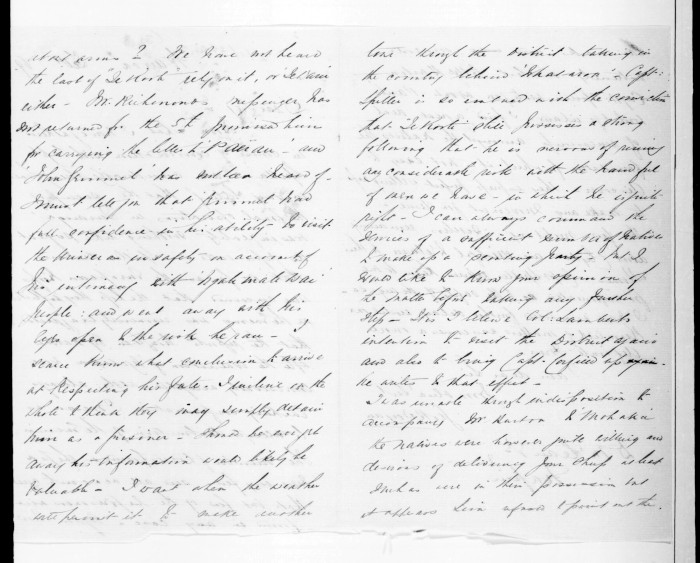 about arms? We have not heard
the last of Te Kooti rely on it, or
either - Mr. Richmond's messenger has
not returned for the 5£ promised him
for carrying the letter to - and
John Grummel has not been heard of -
I must tell you that Grummel had
full confidence in his ability to visit
the in safety on account of
his intimacy with
people: and went away with his
eyes open to the risk he ran - I
scarce know what conclusion to arrive
at respecting his fate. I incline on the
whole to think they may simply detain
him as a prisoner - should he escape
away his information would likely be
valuable - I want when the weather
will permit it to make another
tour through the District taking in
the country behind - Capt:
is so with the conviction
that Te Kooti still possesses a strong
following that he is nervous of running
any considerable risk with the handful
of men we have - in which he is quite
right - I can always command the
services of a sufficient number of Natives
to make up a scouting party - but I
would like to know your opinion of
the matter before taking any further
step - It is I believe Col: Lambert's
intention to visit the District again
and also to bring Capt. up
he writes to that effect -
I was unable through indisposition to
accompany Mr. to Mohaka
the natives were however quite willing and
desirous of delivering your at least
such as were in their possession but
it appears refused to point out the